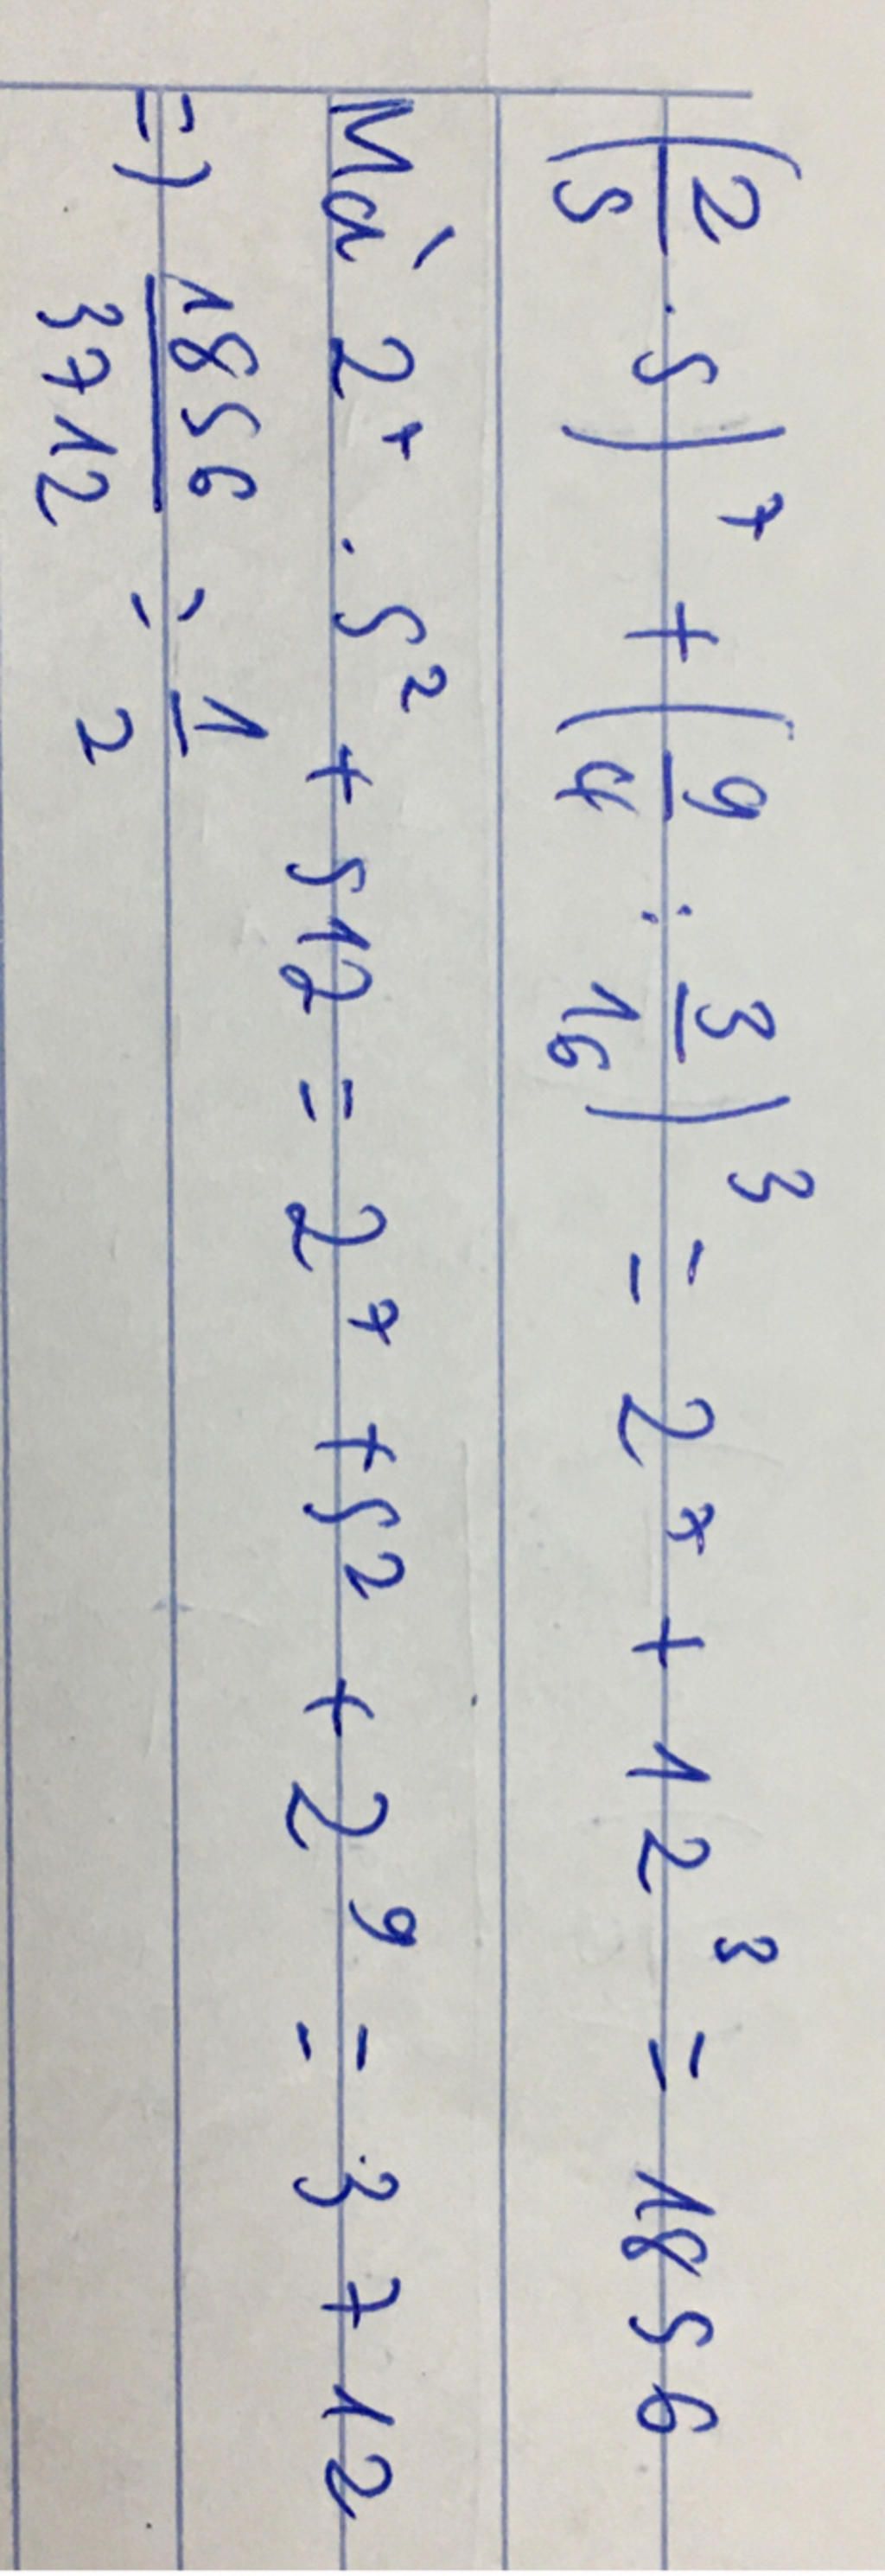 (2/5 . 5)^7 + (9/4 : 3/16)^3 = 2^7 + 12^3 = 1856
Mà 2^7 . 5^2 + 512 = 2^7 + 5^2 + 2^9 = 3712
=) 1856/3712 = 1/2